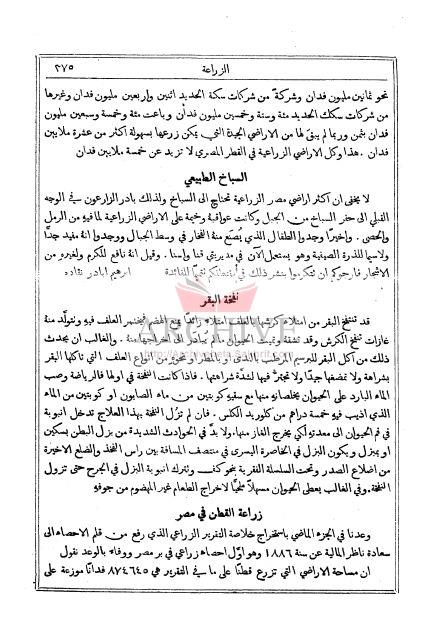 الزراعة ٢٧٥
نحو ثمانين مليون فدان وشركة من شركات سكة الحديد اثنين واربعين مليون فدان وغيرها
من شركات سكك الحديد مئة وستة وخمسين مليون فدان وباعت مئة وخمسة وسبعين مليون
فدان بثمن وربما لم يبق لها من الاراضي الجيدة التي يمكن زرعها بسهولة اكثر من عشرة ملايين
فدان . هذا وكل الاراضي الزراعية في القطر المصري لا تزيد عن خمسة ملايين فدان
السباخ الطبيعي
لا يخفى ان اكثر اراضي مصر الزراعية تحتاج الى السباخ ولذلك بادر الزارعون في الوجه
القبلي الى حفر السباخ من الجبل وكانت عواقبة وخيمة على الاراضي الزراعية لما فيه من الرمل
والحصى . واخيرًا وجدوا الطفال الذي يُصنَع منهُ الفخار في وسط الجبال ووجدوا انهُ مفيد جدًّا
ولاسيما للذرة الصيفية وهو يستعمل الآن في مديريتي قنا واسنا . وقيل انهُ نافع للكرم ولغيره من
الاشجار فارجوكم ان تتكرموا بنشر ذلك في تعميمًا للفائدة ابرهيم
نفخة البقر
قد تنتفخ البقر من امتلاء كرشها بالعلف امتلاء زائدًا فيختمر العلف فيه ويتولَّد منهُ
غازات تنفخ الكرش وقد تشقهُ وتميت الحيوان ما لم يبادر الى اخراجها منهُ . والغالب ان يحدث
ذلك من اكل البقر للبرسيم المرطب بالندى او بالمطر او نحوه من انواع العلف التي تاكلها البقر
بشراهة ولا تمضغها جيدًا ولا تجترُّ فيها لشدَّة شراهتها . فاذا كانت النفخة في اولها فالرياضة وصب
الماء البارد على الحيوان يخلصانهِ منها مع سقيهِ كوبتين من ماء الصابون او كوبتين من الماء
الذي اذيب فيهِ خمسة دراهم من كلوريد الكلس . فان لم تزُل النفخة بهذا العلاج تدخل انبوبة
في فم الحيوان الى معدتهِ لكي يخرج الغاز منها. ولا بدَّ في الحوادث الشديدة من بزل البطن بسكين
او بمبزل ويكون البزل في الخاصرة اليسرى في منتصف المسافة بين راس الفخذ والضلع الاخيرة
من اضلاع الصدر وتحت السلسلة الفقرية بنحو كف وتترك انبوبة البزل في الجرح حتى تزول
النفخة. وفي الغالب يعطى الحيوان مسهلًا ملحيًّا لاخراج الطعام غير المهضوم من جوفهِ
زراعة القطن في مصر
وعدنا في الجزء الماضي باستخراج خلاصة التقرير الزراعي الذي رفع من قلم الاحصاء الى
سعادة ناظر المالية عن سنة ١٨٨٦ وهو اوَّل احصاء زراعي في بر مصر ووفاء بالوعد نقول
ان مساحة الاراضي التي تزرع قطنًا على ما في التقرير هي ٨٧٤٦٤٥ فدانًا موزعة على
ARCHIVE